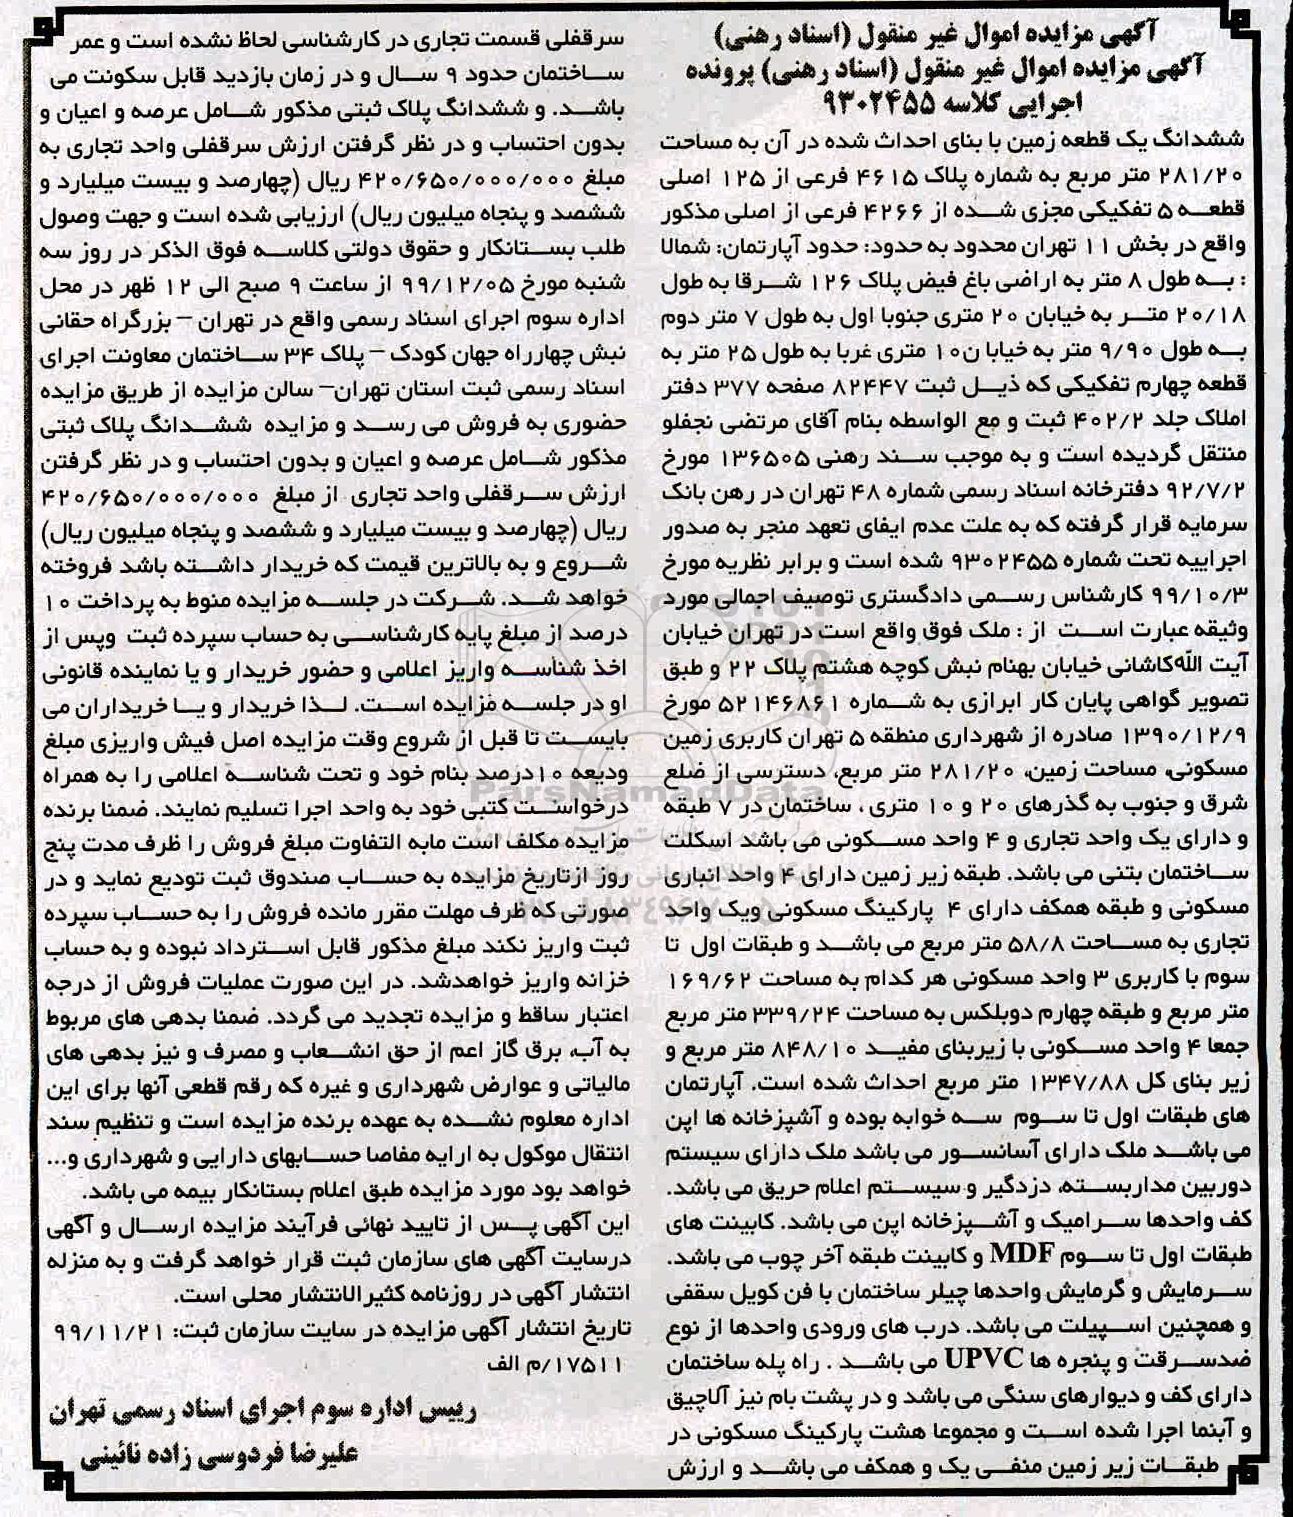 آگهی مزایده اموال غیر منقول (اسناد رهنی)
آگهی مزایده اموال غیر منقول (اسناد رهنی) پرونده
اجرایی کلاسه ۹۳۰۲۴۵۵
ششدانگ یک قطعه زمین با بنای احداث شده در آن به مساحت
۲۸۱/۲۰ متر مربع به شماره پلاک ۴۶۱۵ فرعی از ۱۲۵ اصلی
قطعه ۵ تفکیکی مجزی شده از ۴۲۶۶ فرعی از اصلی مذکور
واقع در بخش ۱۱ تهران محدود به حدود: حدود آپارتمان: شمالا
: به طول ۸ متر به اراضی باغ فیض پلاک ۱۲۶ شرقا به طول
۲۰/۱۸ متر به خیابان ۲۰ متری جنوبا اول به طول ۷ متر دوم
به طول ۹/۹۰ متر به خیابا ن۱۰ متری غربا به طول ۲۵ متر به
قطعه چهارم تفکیکی که ذیل ثبت ۸۲۴۴۷ صفحه ۳۷۷ دفتر
املاک جلد ۴۰۲/۲ ثبت و مع الواسطه بنام آقای مرتضی نجفلو
منتقل گردیده است و به موجب سند رهنی ۱۳۶۵۰۵ مورخ
۹۲/۷/۲ دفترخانه اسناد رسمی شماره ۴۸ تهران در رهن بانک
سرمایه قرار گرفته که به علت عدم ایفای تعهد منجر به صدور
اجراییه تحت شماره ۹۳۰۲۴۵۵ شده است و برابر نظریه مورخ
۹۹/۱۰/۳ کارشناس رسمی دادگستری توصیف اجمالی مورد
وثیقه عبارت است از : ملک فوق واقع است در تهران خیابان
آیت الله‌کاشانی خیابان بهنام نبش کوچه هشتم پلاک ۲۲ و طبق
تصویر گواهی پایان کار ابرازی به شماره ۵۲۱۴۶۸۶۱ مورخ
۱۳۹۰/۱۲/۹ صادره از شهرداری منطقه ۵ تهران کاربری زمین
مسکونی، مساحت زمین، ۲۸۱/۲۰ متر مربع، دسترسی از ضلع
شرق و جنوب به گذرهای ۲۰ و ۱۰ متری ، ساختمان در ۷ طبقه
و دارای یک واحد تجاری و ۴ واحد مسکونی می باشد اسکلت
ساختمان بتنی می باشد. طبقه زیر زمین دارای ۴ واحد انباری
مسکونی و طبقه همکف دارای ۴ پارکینگ مسکونی ویک واحد
تجاری به مساحت ۵۸/۸ متر مربع می باشد و طبقات اول تا
سوم با کاربری ۳ واحد مسکونی هر کدام به مساحت ۱۶۹/۶۲
متر مربع و طبقه چهارم دوبلکس به مساحت ۳۳۹/۲۴ متر مربع
جمعا ۴ واحد مسکونی با زیربنای مفید ۸۴۸/۱۰ متر مربع و
زیر بنای کل ۱۳۴۷/۸۸ متر مربع احداث شده است. آپارتمان
های طبقات اول تا سوم سه خوابه بوده و آشپزخانه ها اپن
می باشد ملک دارای آسانسور می باشد ملک دارای سیستم
دوربین مداربسته، دزدگیر و سیستم اعلام حریق می باشد.
کف واحدها سرامیک و آشپزخانه اپن می باشد. کابینت های
طبقات اول تا سوم MDF و کابینت طبقه آخر چوب می باشد.
سرمایش و گرمایش واحدها چیلر ساختمان با فن کویل سقفی
و همچنین اسپیلت می باشد. درب های ورودی واحدها از نوع
ضدسرقت و پنجره ها UPVC می باشد . راه پله ساختمان
دارای کف و دیوارهای سنگی می باشد و در پشت بام نیز آلاچیق
و آبنما اجرا شده است و مجموعا هشت پارکینگ مسکونی در
طبقات زیر زمین منفی یک و همکف می باشد و ارزش
سرقفلی قسمت تجاری در کارشناسی لحاظ نشده است و عمر
ساختمان حدود ۹ سال و در زمان بازدید قابل سکونت می
باشد. و ششدانگ پلاک ثبتی مذکور شامل عرصه و اعیان و
بدون احتساب و در نظر گرفتن ارزش سرقفلی واحد تجاری به
مبلغ ۴۲۰/۶۵۰/۰۰۰/۰۰۰ ریال (چهارصد و بیست میلیارد و
ششصد و پنجاه میلیون ریال) ارزیابی شده است و جهت وصول
طلب بستانکار و حقوق دولتی کلاسه فوق الذکر در روز سه
شنبه مورخ ۹۹/۱۲/۰۵ از ساعت ۹ صبح الی ۱۲ ظهر در محل
اداره سوم اجرای اسناد رسمی واقع در تهران – بزرگراه حقانی
نبش چهارراه جهان کودک – پلاک ۳۴ ساختمان معاونت اجرای
اسناد رسمی ثبت استان تهران– سالن مزایده از طریق مزایده
حضوری به فروش می رسد و مزایده ششدانگ پلاک ثبتی
مذکور شامل عرصه و اعیان و بدون احتساب و در نظر گرفتن
ارزش سرقفلی واحد تجاری از مبلغ ۴۲۰/۶۵۰/۰۰۰/۰۰۰
ریال (چهارصد و بیست میلیارد و ششصد و پنجاه میلیون ریال)
شروع و به بالاترین قیمت که خریدار داشته باشد فروخته
خواهد شد. شرکت در جلسه مزایده منوط به پرداخت ۱۰
درصد از مبلغ پایه کارشناسی به حساب سپرده ثبت وپس از
اخذ شناسه واریز اعلامی و حضور خریدار و یا نماینده قانونی
او در جلسه مزایده است. لذا خریدار و یا خریداران می
بایست تا قبل از شروع وقت مزایده اصل فیش واریزی مبلغ
ودیعه ۱۰درصد بنام خود و تحت شناسه اعلامی را به همراه
درخواست کتبی خود به واحد اجرا تسلیم نمایند. ضمنا برنده
مزایده مکلف است مابه التفاوت مبلغ فروش را ظرف مدت پنج
روز ازتاریخ مزایده به حساب صندوق ثبت تودیع نماید و در
صورتی که ظرف مهلت مقرر مانده فروش را به حساب سپرده
ثبت واریز نکند مبلغ مذکور قابل استرداد نبوده و به حساب
خزانه واریز خواهدشد. در این صورت عملیات فروش از درجه
اعتبار ساقط و مزایده تجدید می گردد. ضمنا بدهی های مربوط
به آب، برق گاز اعم از حق انشعاب و مصرف و نیز بدهی های
مالیاتی و عوارض شهرداری و غیره که رقم قطعی آنها برای این
اداره معلوم نشده به عهده برنده مزایده است و تنظیم سند
انتقال موکول به ارایه مفاصا حسابهای دارایی و شهرداری و...
خواهد بود مورد مزایده طبق اعلام بستانکار بیمه می باشد.
این آگهی پس از تایید نهائی فرآیند مزایده ارسال و آگهی
درسایت آگهی های سازمان ثبت قرار خواهد گرفت و به منزله
انتشار آگهی در روزنامه کثیرالانتشار محلی است.
تاریخ انتشار آگهی مزایده در سایت سازمان ثبت: ۹۹/۱۱/۲۱
۱۷۵۱۱/م الف
رییس اداره سوم اجرای اسناد رسمی تهران
علیرضا فردوسی زاده نائینی
ParsNamadData